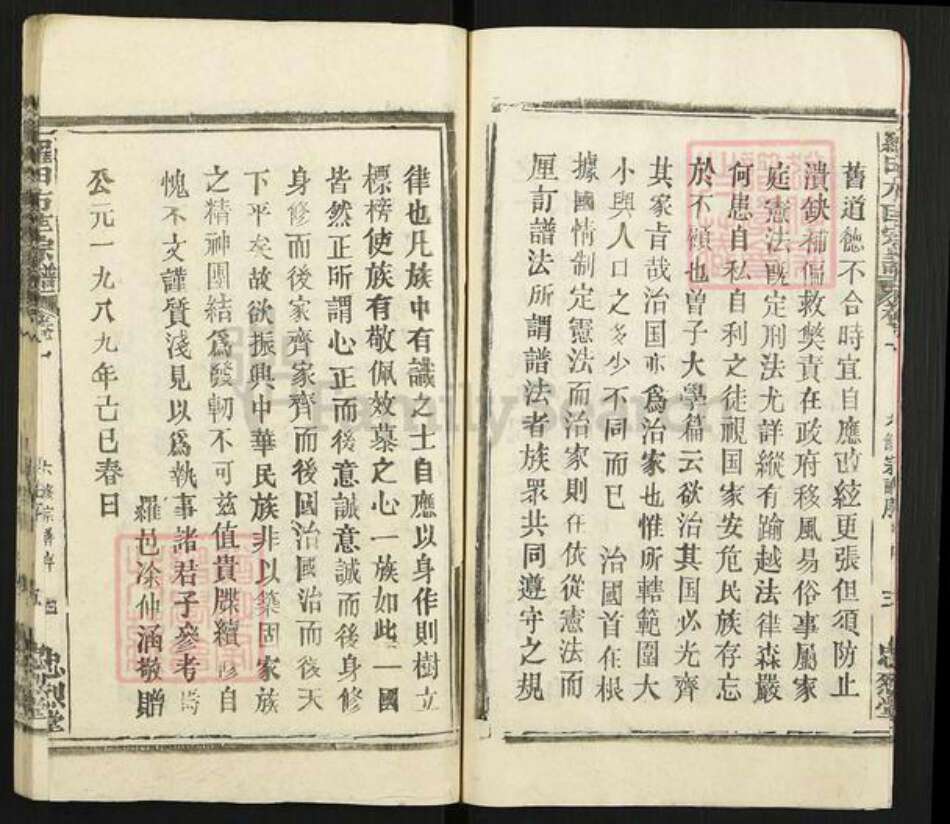 舊道德不合時宜自應改絃更張但須防止
潰缺補偏救獘責在政府移風易俗事屬家
庭憲法既定刑法尤詳縱有踰越法律森嚴
何患自私自利之徒視国家安危民族存忘
於不顧也曽子大學篇云欲治其国必光齊
其家旨哉治国亦為治家也惟所轄範圍大
小與人口之多少不同而已 治國首在根
據國情制定憲法而治家則在依從憲法而
厘訂譜法所謂譜法者族眾共同遵守之規
律也凡族中有識之士自應以身作則樹立
標榜使族有敬佩效慕之心一族如此一國
皆然正所謂心正而後意誠意誠而後身修
身修而後家齊家齊而後國治國治而後天
下平矣故欲振興中華民族非以築固家族
之精神團結為發軔不可兹值貴牒續修自
愧不文謹質淺見以為執事諸君子參考焉
羅邑涂仲涵敬贈
公元一九八九年亡巳春日
忠烈堂